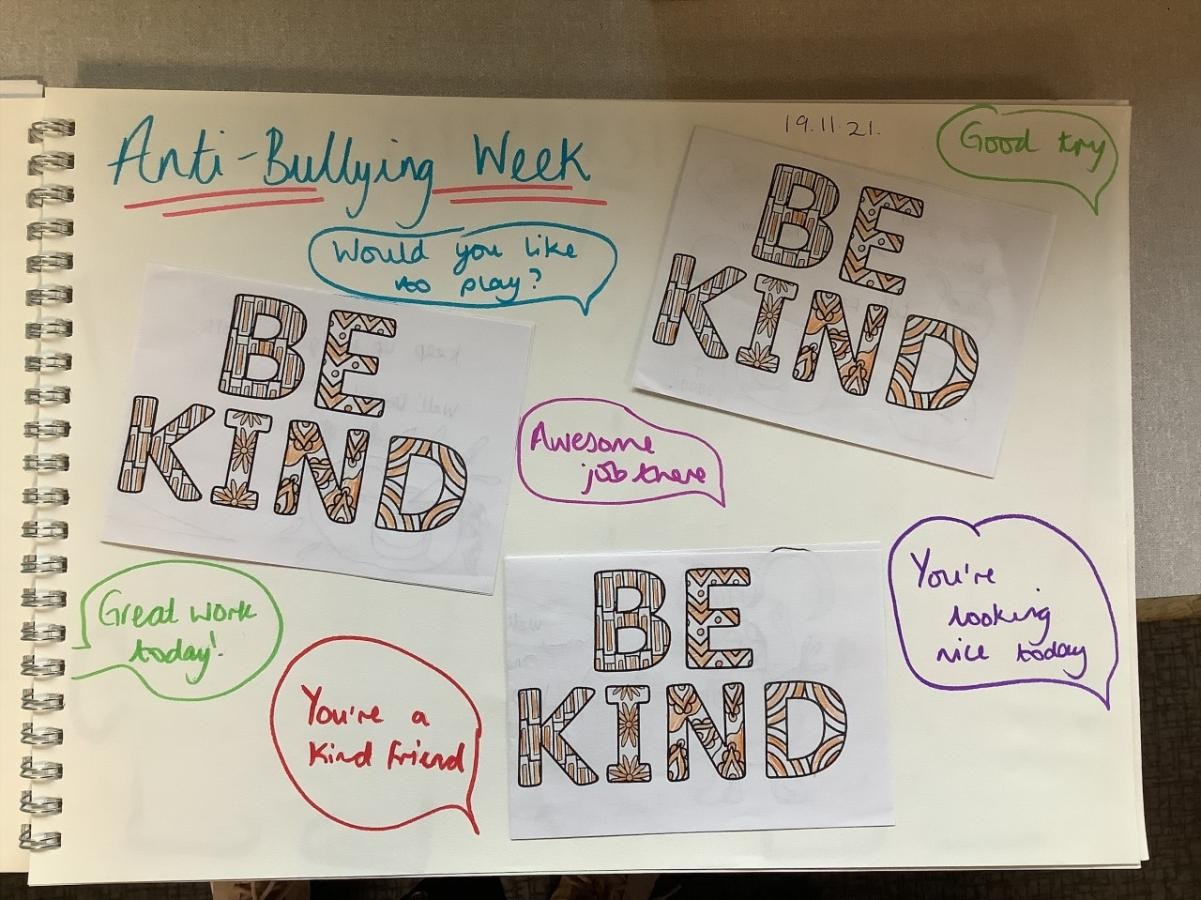 Anti-Bullying Week
19.11.21.
Good try
Would you like
to play?
BE
KIND
BE
KIND
Awesome
job there
Great work
today!
You're a
kind friend
BE
KIND
You're
looking
nice today